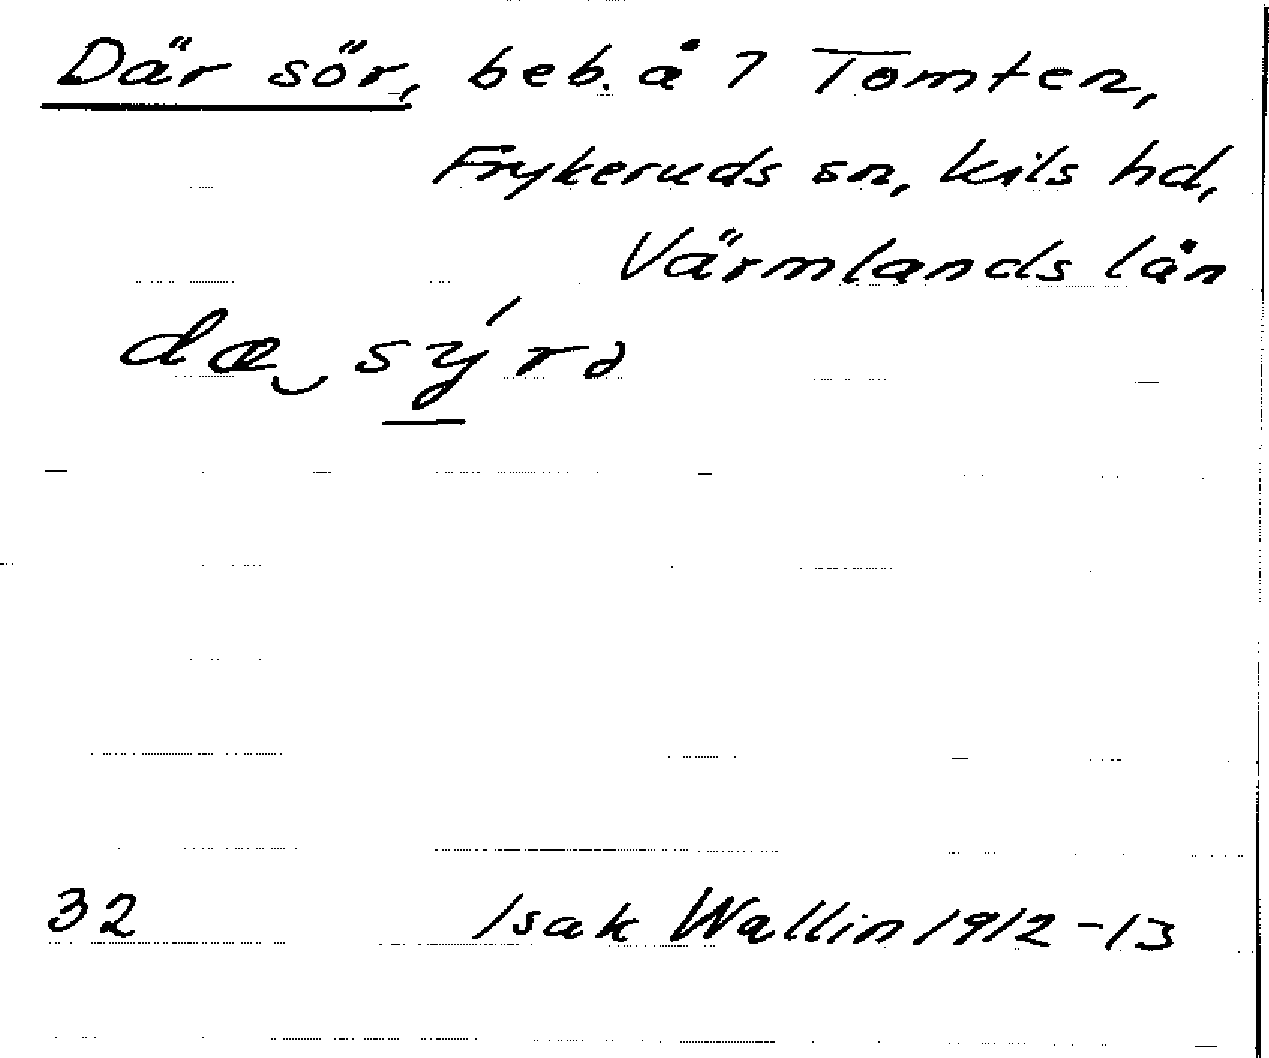 Där sör, beb. å 7 Tomten,
Frykeruds sn, Kils hd,
Värmlands län
dæ‿ sýrə
32 Isak Wallin 1912-13